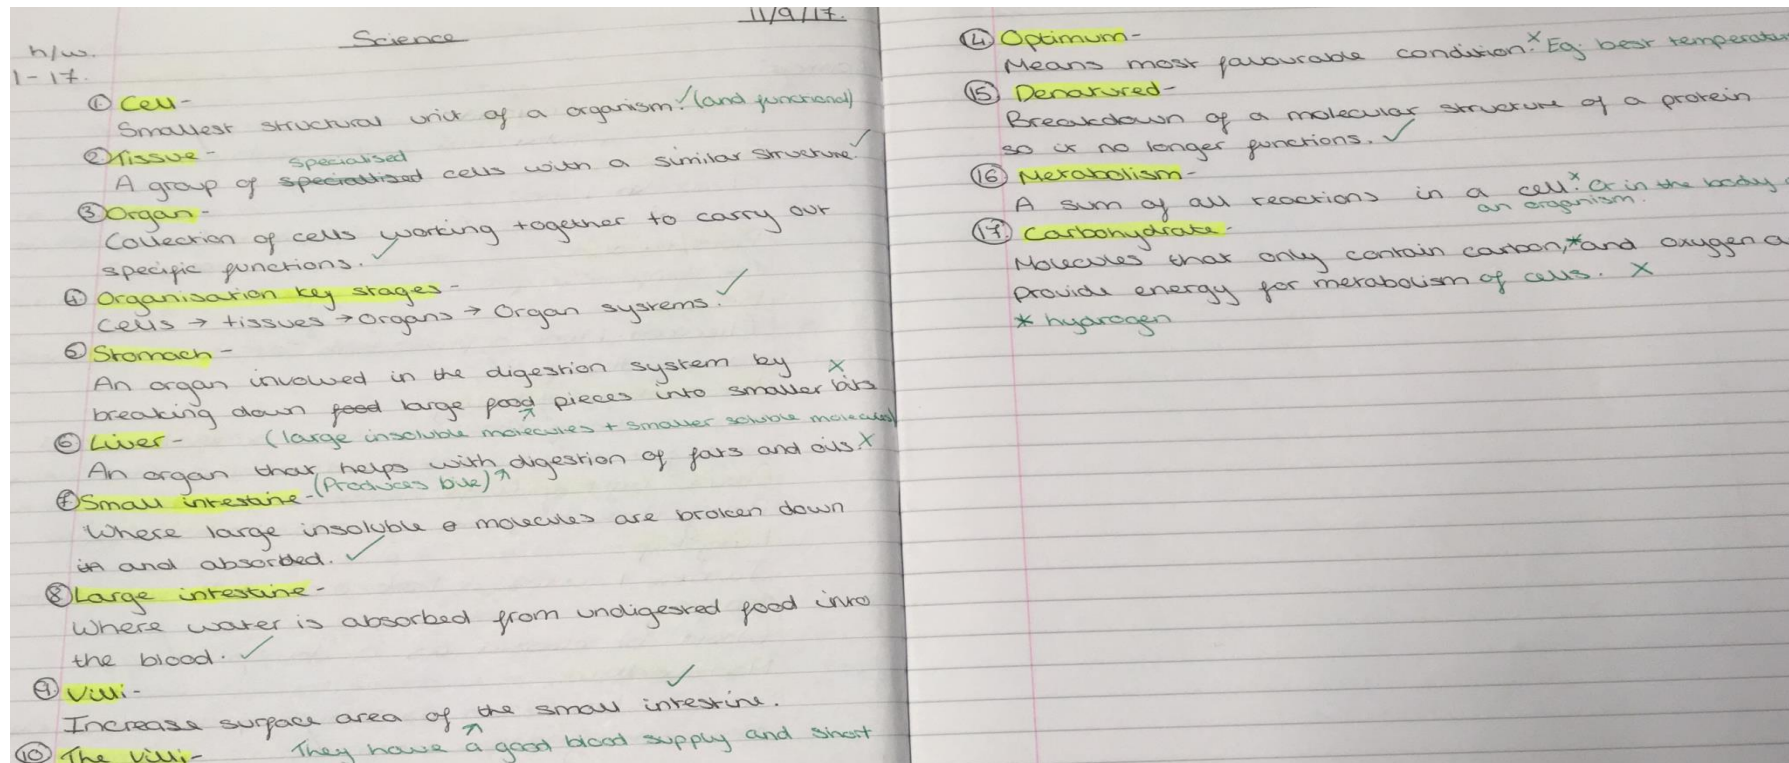 11/9/17.
Science
h/w.
1-17.
① Cell-
Smallest structural unit of a organism. ✓ (and functional)
② Tissue-
specialised
A group of cells with a similar structure. ✓
③ Organ-
Collection of cells working together to carry out
specific functions. ✓
④ Organisation key stages-
Cells → tissues → Organs → Organ systems. ✓
⑤ Stomach-
An organ involved in the digestion system by x
breaking down food large food pieces into smaller bits
(large insoluble molecules + smaller soluble molecules)
⑥ Liver-
An organ that helps with digestion of fats and oils. x
(Produces bile)
⑦ Small intestine-
Where large insoluble molecules are broken down
in and absorbed. ✓
⑧ Large intestine-
Where water is absorbed from undigested food into
the blood. ✓
⑨ Villi-
Increase surface area of the small intestine. ✓
They have a good blood supply and short
⑩ The villi-
⑭ Optimum-
Means most favourable condition. x Eg: best temperature
⑮ Denatured-
Breakdown of a molecular structure of a protein
so it no longer functions. ✓
⑯ Metabolism-
A sum of all reactions in a cell. x Or in the body
an organism.
⑰ Carbohydrate-
Molecules that only contain carbon,* and oxygen
provide energy for metabolism of cells. x
* hydrogen